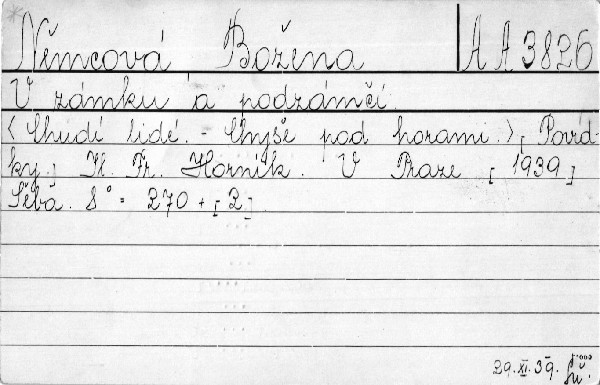 Němcová Božena AA 3826
V zámku a podzámčí.
<Chudí lidé. - Chyše pod horami.>, [Povíd-
ky.] Il. Fr. Horník. V Praze [1939]
Šeba. 8° = 270 + [2].
29. XI. 39.